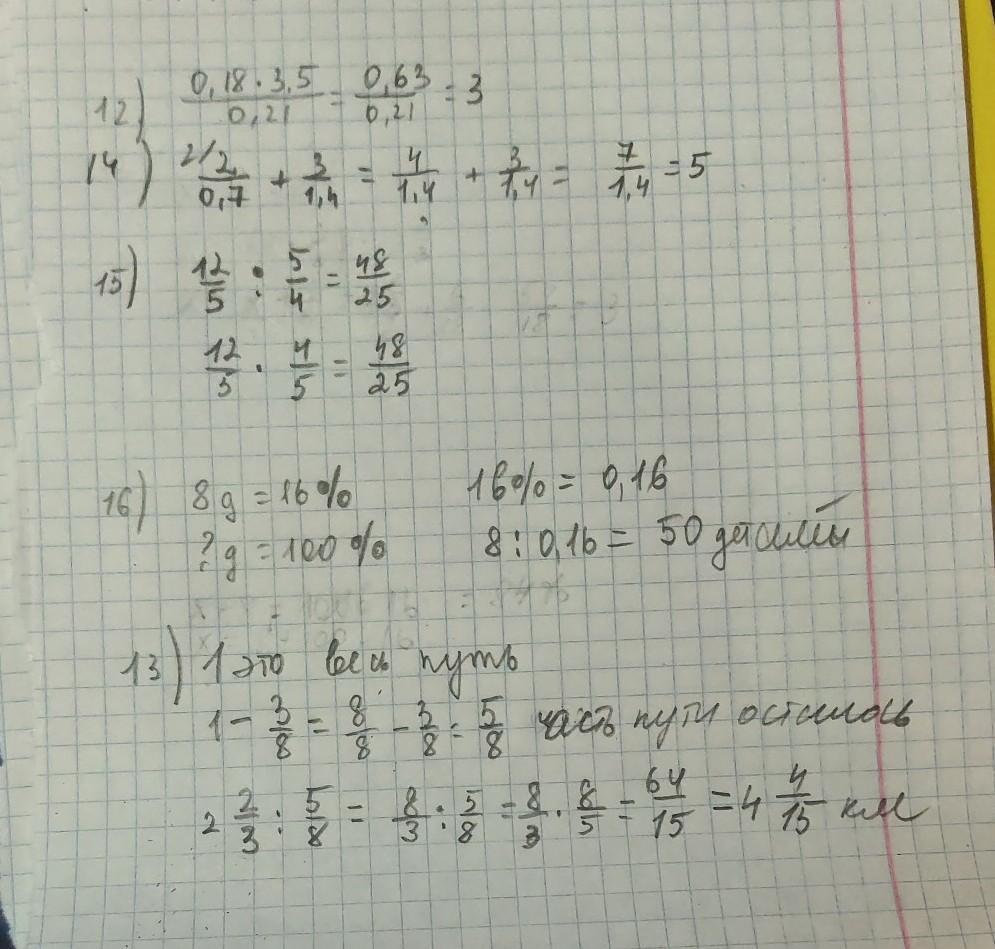 12) (0,18 · 3,5)/0,21 = 0,63/0,21 = 3
14) 2/ 2/0,7 + 3/1,4 = 4/1,4 + 3/1,4 = 7/1,4 = 5
15) 12/5 : 5/4 = 48/25
12/5 · 4/5 = 48/25
16) 8 д = 16% 16% = 0,16
? д = 100% 8 : 0,16 = 50 деталей
13) 1 это весь путь
1 - 3/8 = 8/8 - 3/8 = 5/8 часть пути осталось
2 2/3 : 5/8 = 8/3 : 5/8 = 8/3 · 8/5 = 64/15 = 4 4/15 км